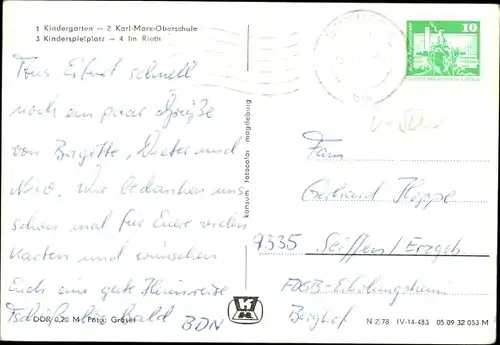 1 Kindergarten – 2 Karl-Marx-Oberschule
3 Kinderspielplatz – 4 Im Rieth
Aus Erfurt schnell
noch ein paar Grüße
von Birgitte, Dieter und
Wir bedanken uns
schon mal für Eure vielen
Karten und wünschen
Euch eine gute Heimreise
Tschüß bis bald
BDN
DDR 0,20 M Foto: Gröser
konsum fotocolor magdeburg
10
Fam
Gerhard Hoppe
9335 Seiffen/Erzgeb
FDGB-Erholungsheim
Berghof
N 2/78 IV-14-483 05 09 32 053 M